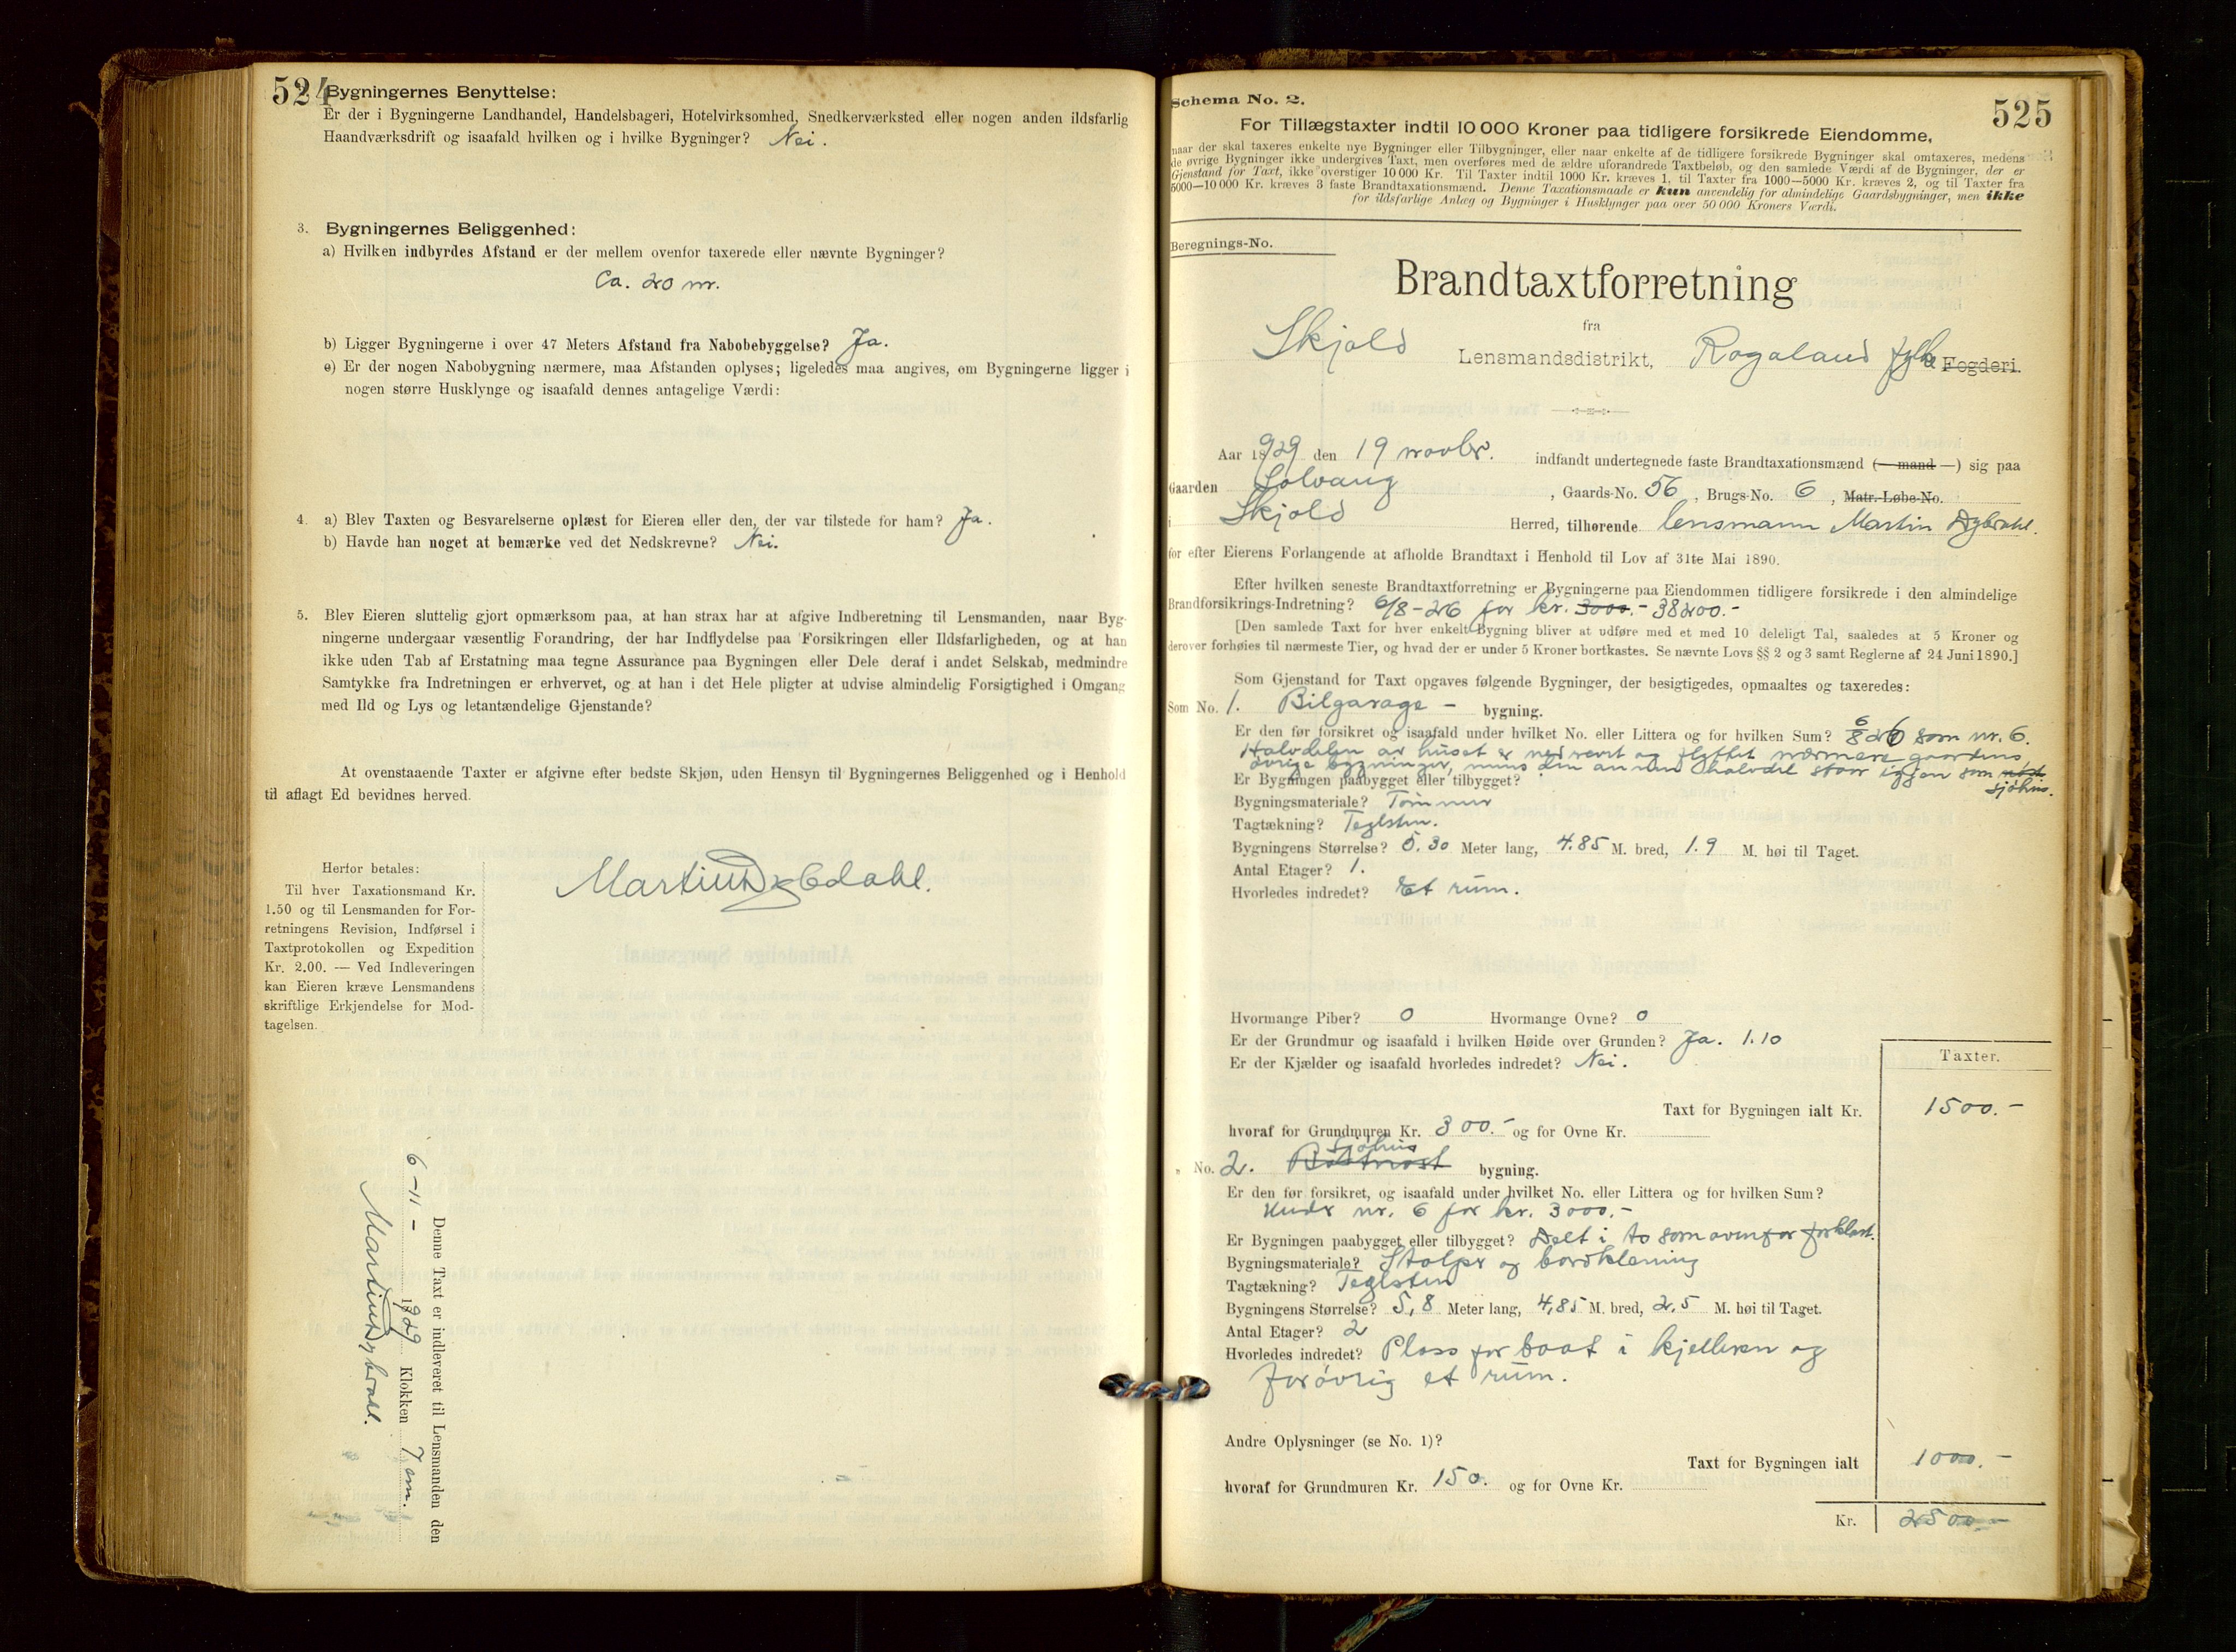 524
Bygningernes Benyttelse:
Er der i Bygningerne Landhandel, Handelsbageri, Hotelvirksomhed, Snedkerværksted eller nogen anden ildsfarlig
Haandværksdrift og isaafald hvilken og i hvilke Bygninger? Nei.
3. Bygningernes Beliggenhed:
a) Hvilken indbyrdes Afstand er der mellem ovenfor taxerede eller nævnte Bygninger?
Ca. 20 m.
b) Ligger Bygningerne i over 47 Meters Afstand fra Nabobebyggelse? Ja.
c) Er der nogen Nabobygning nærmere, maa Afstanden oplyses; ligeledes maa angives, om Bygningerne ligger i
nogen større Husklynge og isaafald dennes antagelige Værdi:
4. a) Blev Taxten og Besvarelserne oplæst for Eieren eller den, der var tilstede for ham? Ja.
b) Havde han noget at bemærke ved det Nedskrevne? Nei.
5. Blev Eieren sluttelig gjort opmærksom paa, at han strax har at afgive Indberetning til Lensmanden, naar Byg-
ningerne undergaar væsentlig Forandring, der har Indflydelse paa Forsikringen eller Ildsfarligheden, og at han
ikke uden Tab af Erstatning maa tegne Assurance paa Bygningen eller Dele deraf i andet Selskab, medmindre
Samtykke fra Indretningen er erhvervet, og at han i det Hele pligter at udvise almindelig Forsigtighed i Omgang
med Ild og Lys og letantændelige Gjenstande?
At ovenstaaende Taxter er afgivne efter bedste Skjøn, uden Hensyn til Bygningernes Beliggenhed og i Henhold
til aflagt Ed bevidnes herved.
Herfor betales:
Til hver Taxationsmand Kr.
1.50 og til Lensmanden for For-
retningens Revision, Indførsel i
Taxtprotokollen og Expedition
Kr. 2.00. — Ved Indleveringen
kan Eieren kræve Lensmandens
skriftlige Erkjendelse for Mod-
tagelsen.
Martin Dybdahl.
Denne Taxt er indleveret til Lensmanden den
6-11- 1929 Klokken 7 em.
Martin Dybdahl.
525
Schema No. 2.
For Tillægstaxter indtil 10 000 Kroner paa tidligere forsikrede Eiendomme,
naar der skal taxeres enkelte nye Bygninger eller Tilbygninger, eller naar enkelte af de tidligere forsikrede Bygninger skal omtaxeres, medens
de øvrige Bygninger ikke undergives Taxt, men overføres med de ældre uforandrede Taxtbeløb, og den samlede Værdi af de Bygninger, der er
Gjenstand for Taxt, ikke overstiger 10 000 Kr. Til Taxter indtil 1000 Kr. kræves 1, til Taxter fra 1000—5000 Kr. kræves 2, og til Taxter fra
5000—10 000 Kr. kræves 3 faste Brandtaxationsmænd. Denne Taxationsmaade er kun anvendelig for almindelige Gaardsbygninger, men ikke
for ildsfarlige Anlæg og Bygninger i Husklynger paa over 50 000 Kroners Værdi.
Beregnings-No.
Brandtaxtforretning
fra
Skjold Lensmandsdistrikt, Rogaland fylke Fogderi.
Aar 1929 den 19 novbr. indfandt undertegnede faste Brandtaxationsmænd (— mand —) sig paa
Gaarden Solvang, Gaards-No. 56, Brugs-No. 6, Matr.-Løbe-No.
i Skjold Herred, tilhørende lensmann Martin Dybdahl.
for efter Eierens Forlangende at afholde Brandtaxt i Henhold til Lov af 31te Mai 1890.
Efter hvilken seneste Brandtaxtforretning er Bygningerne paa Eiendommen tidligere forsikrede i den almindelige
Brandforsikrings-Indretning? 6/8-26 for kr. 3000.- 38200.-
[Den samlede Taxt for hver enkelt Bygning bliver at udføre med et med 10 deleligt Tal, saaledes at 5 Kroner og
derover forhøies til nærmeste Tier, og hvad der er under 5 Kroner bortkastes. Se nævnte Lovs §§ 2 og 3 samt Reglerne af 24 Juni 1890.]
Som Gjenstand for Taxt opgaves følgende Bygninger, der besigtigedes, opmaaltes og taxeredes:
Som No. 1. Bilgarage - bygning.
Er den før forsikret og isaafald under hvilket No. eller Littera og for hvilken Sum? 6/8 26 som nr. 6.
Halvdelen av huset er nedrevet og flyttet nærmere gaardens
øvrige bygninger, mens den annen halvdel staar igjen som nøst sjøhus.
Er Bygningen paabygget eller tilbygget?
Bygningsmateriale? Tømmer
Tagtækning? Teglsten.
Bygningens Størrelse? 5.30 Meter lang, 4.85 M. bred, 1.9 M. høi til Taget.
Antal Etager? 1.
Hvorledes indredet? Et rum.
Hvormange Piber? 0 Hvormange Ovne? 0
Er der Grundmur og isaafald i hvilken Høide over Grunden? Ja. 1.10
Er der Kjælder og isaafald hvorledes indredet? Nei.
Taxter.
Taxt for Bygningen ialt Kr. 1500.-
hvoraf for Grundmuren Kr. 300.- og for Ovne Kr.
" No. 2. Baatnøst Sjøhus bygning.
Er den før forsikret, og isaafald under hvilket No. eller Littera og for hvilken Sum?
Under nr. 6 for kr. 3000.-
Er Bygningen paabygget eller tilbygget? Delt i to som ovenfor forklart.
Bygningsmateriale? Stolper og bordklening
Tagtækning? Teglsten
Bygningens Størrelse? 5,8 Meter lang, 4,85 M. bred, 2.5 M. høi til Taget.
Antal Etager? 2
Hvorledes indredet? Plass for baat i kjelleren og
forøvrig et rum.
Andre Oplysninger (se No. 1)?
Taxt for Bygningen ialt 1000.-
hvoraf for Grundmuren Kr. 150. og for Ovne Kr.
Kr. 2500.-